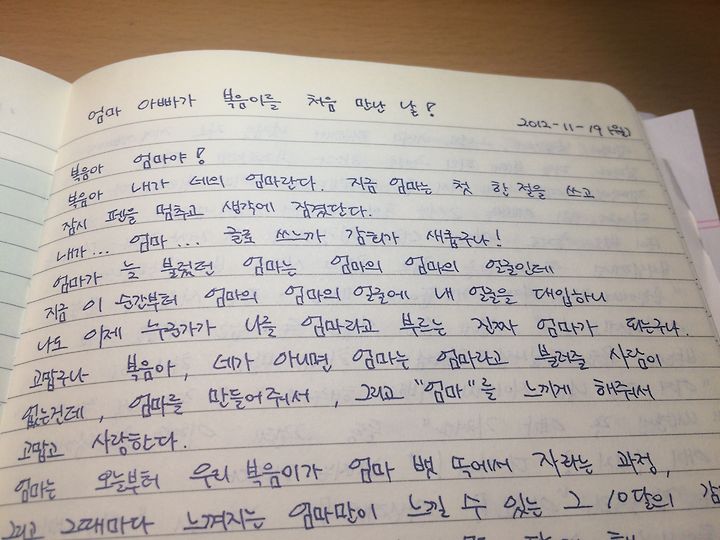 엄마 아빠가 복음이를 처음 만난 날!
2012-11-19(월)
복음아 엄마야!
복음아 내가 네의 엄마란다. 지금 엄마는 첫 한 절을 쓰고
잠시 펜을 멈추고 생각에 잠겼단다.
내가... 엄마... 글로 쓰느까 감회가 새롭구나!
엄마가 늘 불렀던 엄마는 엄마의 엄마의 얼굴인데
지금 이 순간부터 엄마의 엄마의 얼굴에 내 얼굴을 대입하니
나도 이제 누군가가 나를 엄마라고 부르는 진짜 엄마가 되는구나.
고맙구나 복음아, 네가 아니면 엄마는 엄마라고 불러줄 사람이
없는건데, 엄마를 만들어줘서, 그리고 "엄마"를 느끼게 해줘서
고맙고 사랑한다.
엄마는 오늘부터 우리 복음이가 엄마 뱃 속에서 자라는 과정,
그리고 그때마다 느껴지는 엄마만이 느낄 수 있는 그 10달의